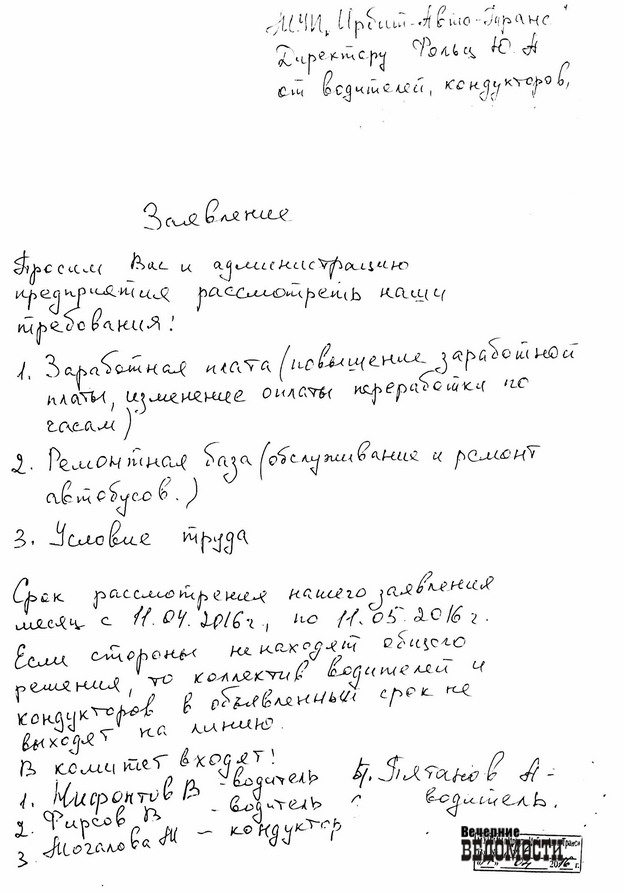 МУП „Ирбит-Авто-Транс"
Директору Фольц Ю. А
от водителей, кондукторов,
Заявление
Просим Вас и администрацию
предприятия рассмотреть наши
требования!
1. Заработная плата (повышение заработной
платы, изменение оплаты переработки по
часам)
2. Ремонтная база (обслуживание и ремонт
автобусов.)
3. Условие труда
Срок рассмотрения нашего заявления
месяц с 11.04.2016г., по 11.05.2016г.
Если стороны не находят общего
решения, то коллектив водителей и
кондукторов в объявленный срок не
выходят на линию.
В комитет входят!
1. Мифонтов В - водитель
2. Фирсов В - водитель
3. Могалова М - кондуктор
4. Пятанов А -
водитель.
Вечерние
ВЕДОМОСТИ